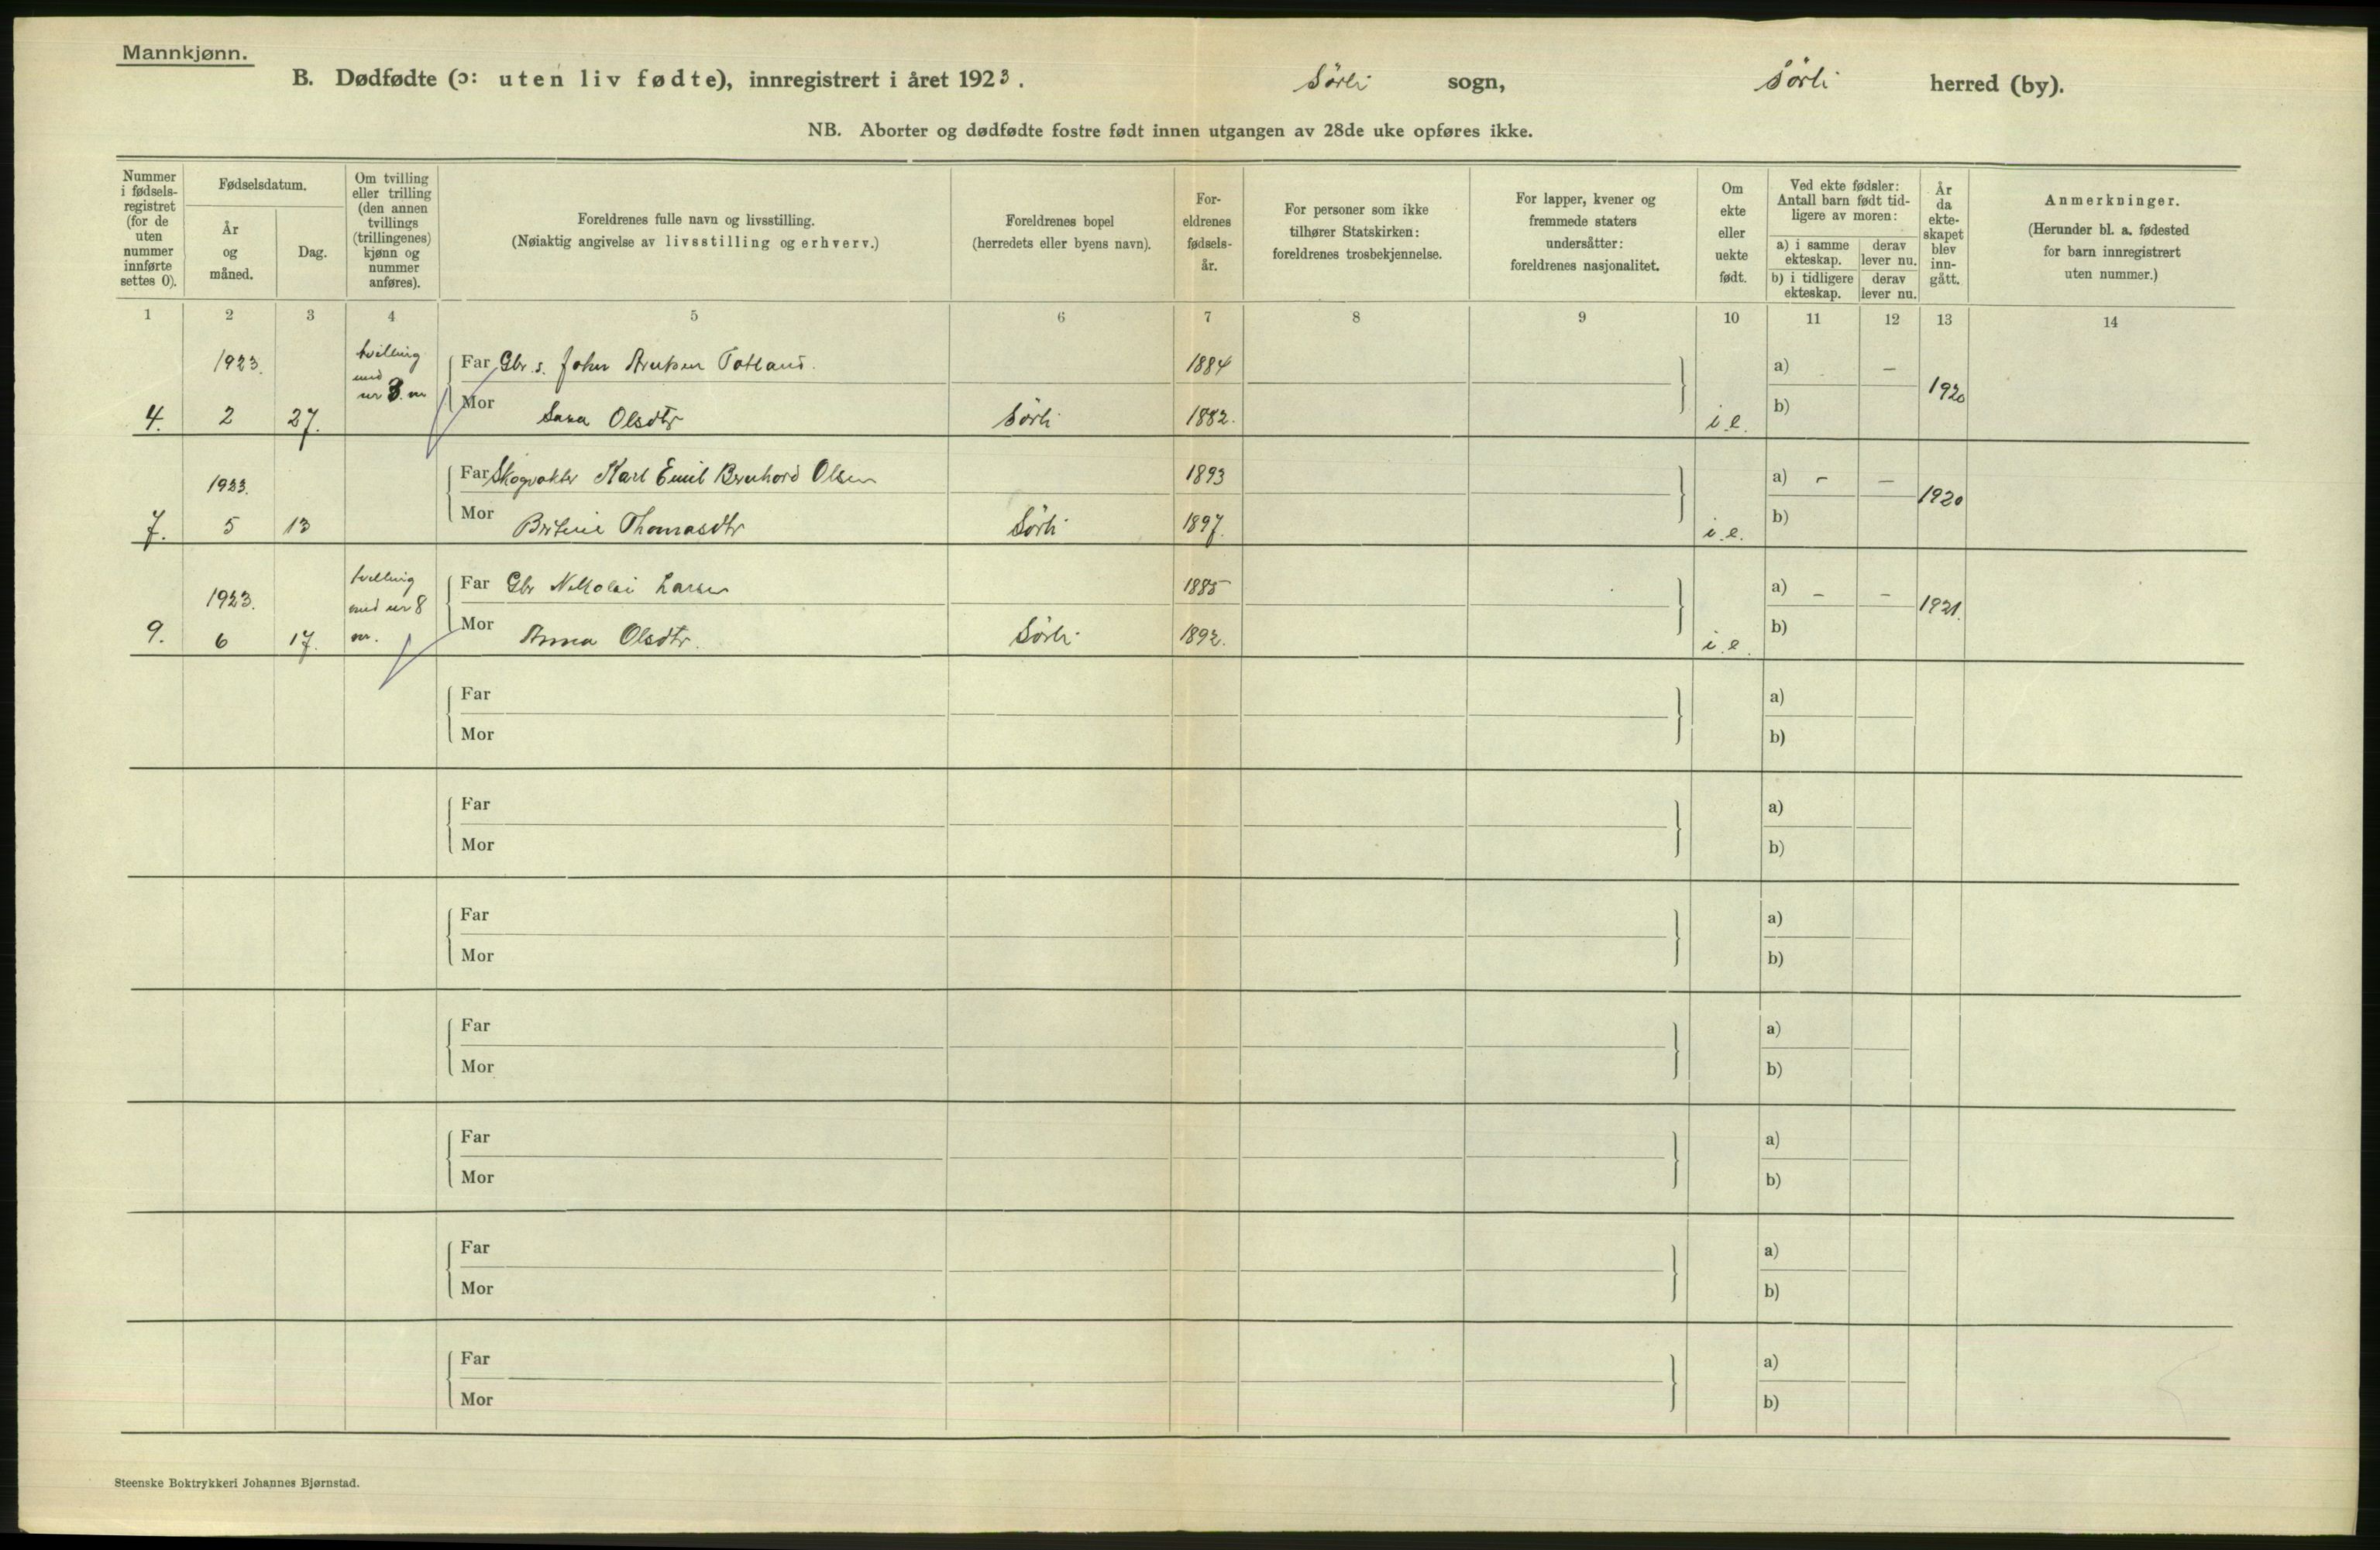 Mannkjønn.
B. Dødfødte (ɔ: uten liv fødte), innregistrert i året 1923. Sörli sogn, Sörli herred (by).
NB. Aborter og dødfødte fostre født innen utgangen av 28de uke opføres ikke.
Nummer i fødsels- registret (for de uten nummer innførte settes 0).
Fødselsdatum.
År og måned.
Dag.
Om tvilling eller trilling (den annen tvillings (trillingenes) kjønn og nummer anføres).
Foreldrenes fulle navn og livsstilling.
(Nøiaktig angivelse av livsstilling og erhverv.)
Foreldrenes bopel
(herredets eller byens navn).
For- eldrenes fødsels- år.
For personer som ikke tilhører Statskirken: foreldrenes trosbekjennelse.
For lapper, kvener og fremmede staters undersåtter: foreldrenes nasjonalitet.
Om ekte eller uekte født.
Ved ekte fødsler: Antall barn født tid- ligere av moren:
a) i samme ekteskap.
derav lever nu.
b) i tidligere ekteskap.
derav lever nu.
År da ekte- skapet blev inn- gått.
Anmerkninger.
(Herunder bl. a. fødested for barn innregistrert uten nummer.)
1 2 3 4 5 6 7 8 9 10 11 12 13 14
1923. tvilling med nr 3. m Far Gbr. s. John Totland. 1884 a) – 1920
4. 2 27. Mor Sara Olsdtr Sörli 1882. i.e. b)
1923. Far Skogvokter Karl Emil Bernhard Olsen 1893 a) – – 1920
7. 5 13 Mor Thomasdtr Sörli 1897. i.e. b)
1923. tvilling med nr 8 m. Far Gbr Nikolai Larsen 1885 a) – – 1921.
9. 6 17. Mor Anna Olsdtr. Sörli 1892. i.e. b)
Far a)
Mor b)
Far a)
Mor b)
Far a)
Mor b)
Far a)
Mor b)
Far a)
Mor b)
Far a)
Mor b)
Far a)
Mor b)
Steenske Boktrykkeri Johannes Bjørnstad.